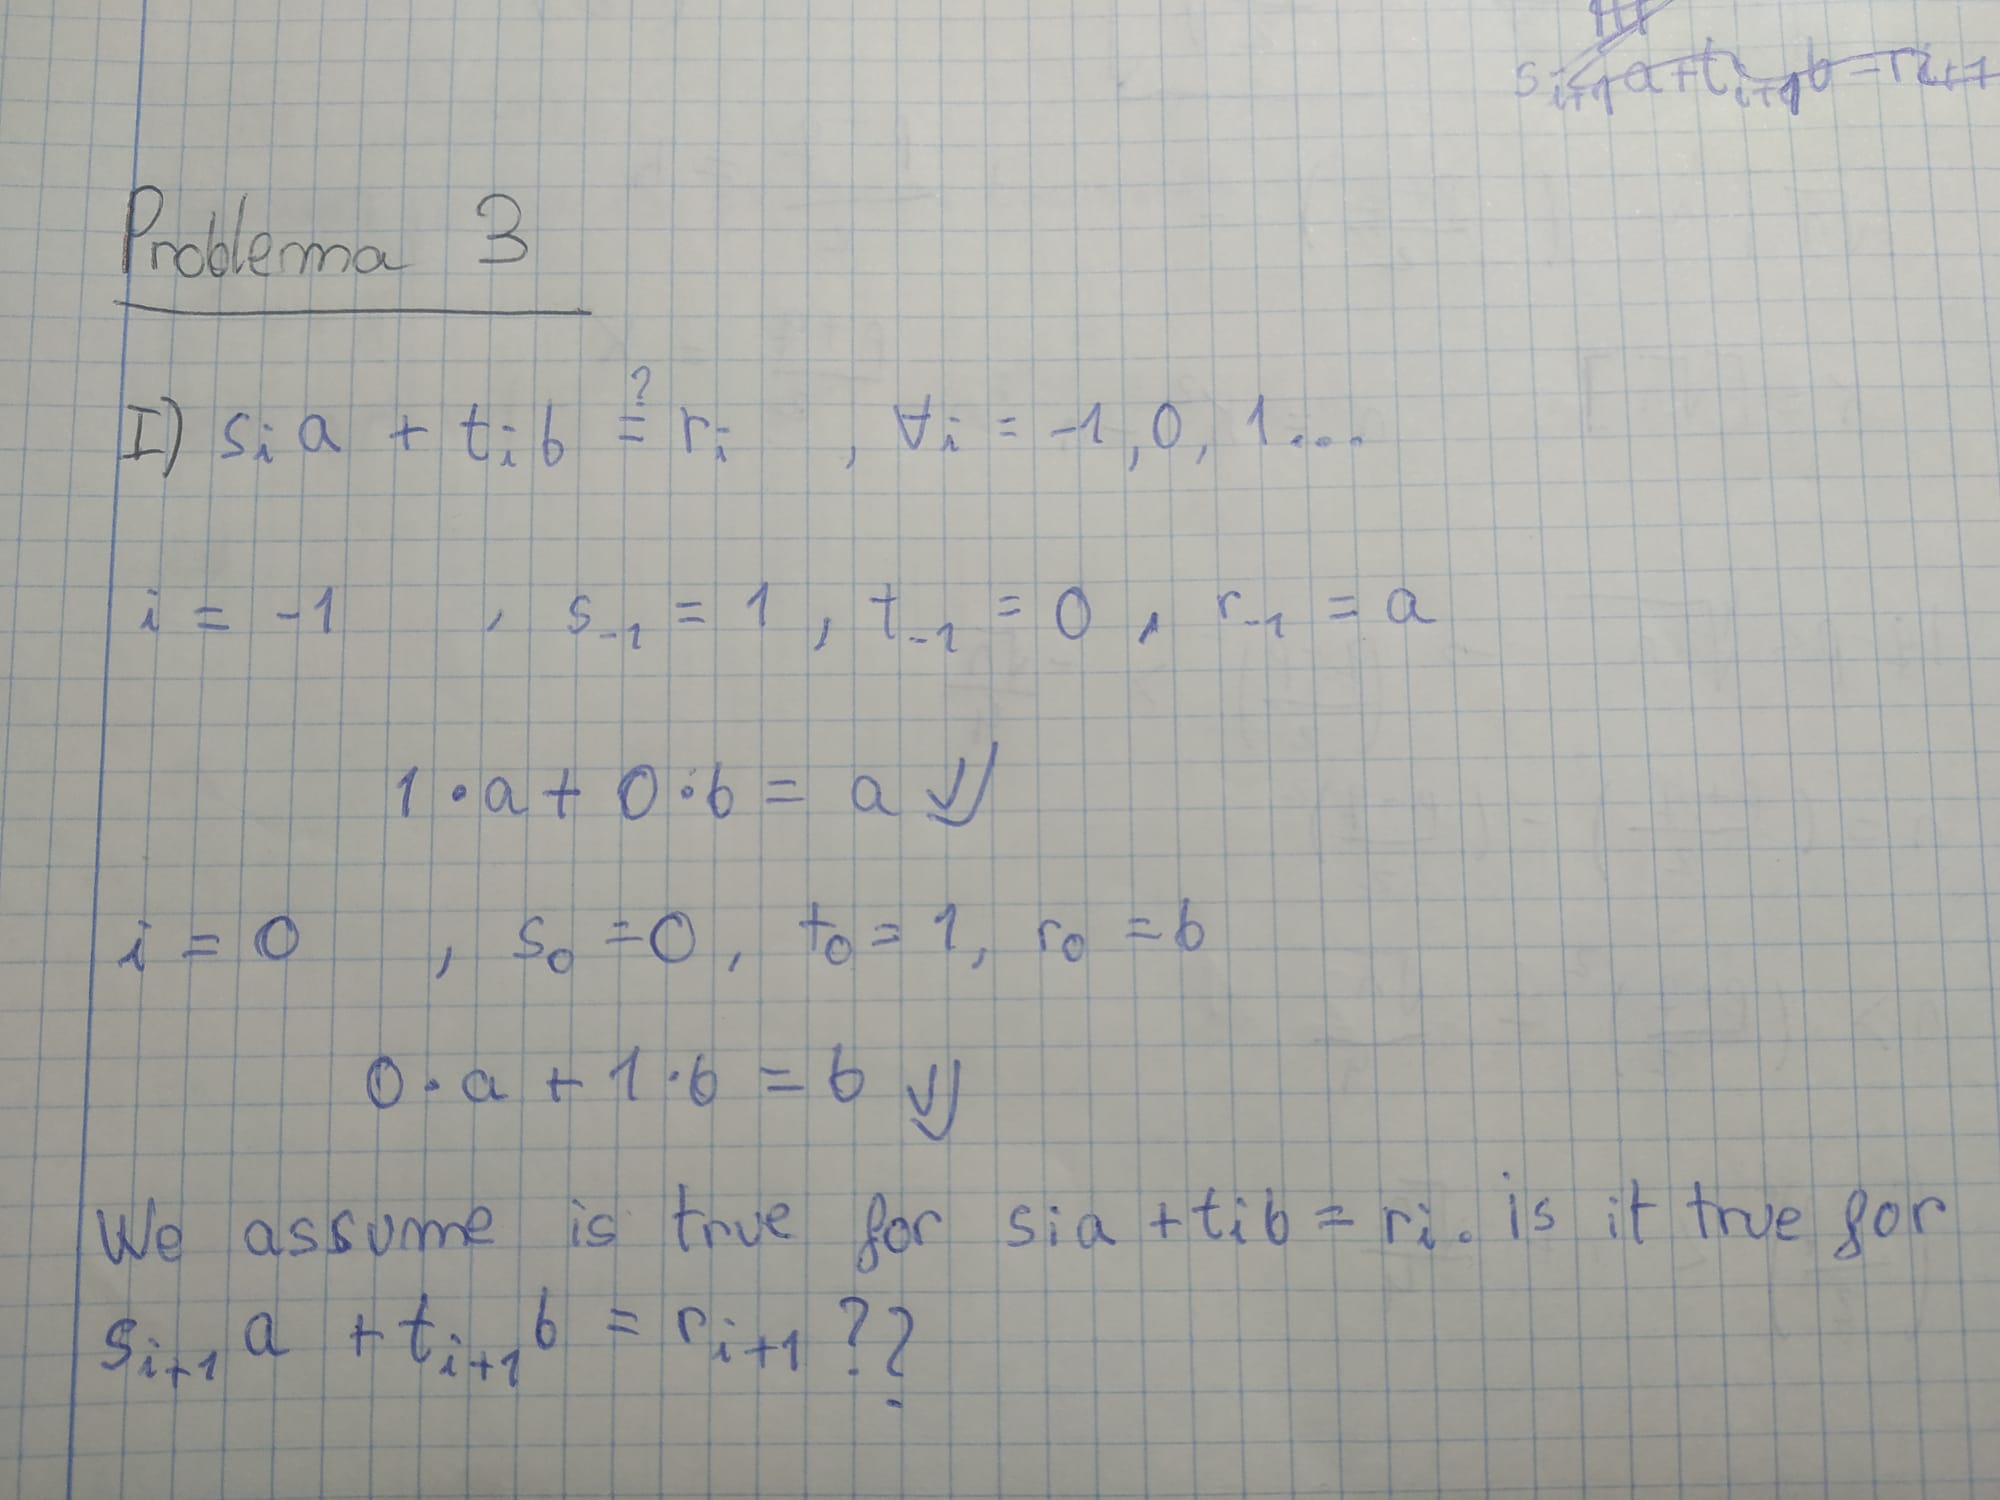 s_{i+1}a+t_{i+1}b=r_{i+1}
Problema 3
I) s_i a + t_i b ≟ r_i , ∀i = -1, 0, 1...
i = -1 , s_{-1} = 1 , t_{-1} = 0 , r_{-1} = a
1·a + 0·b = a ✓
i = 0 , s_0 = 0 , t_0 = 1, r_0 = b
0·a + 1·b = b ✓
We assume is true for s_i a + t_i b = r_i. is it true for
s_{i+1} a + t_{i+1} b = r_{i+1} ??